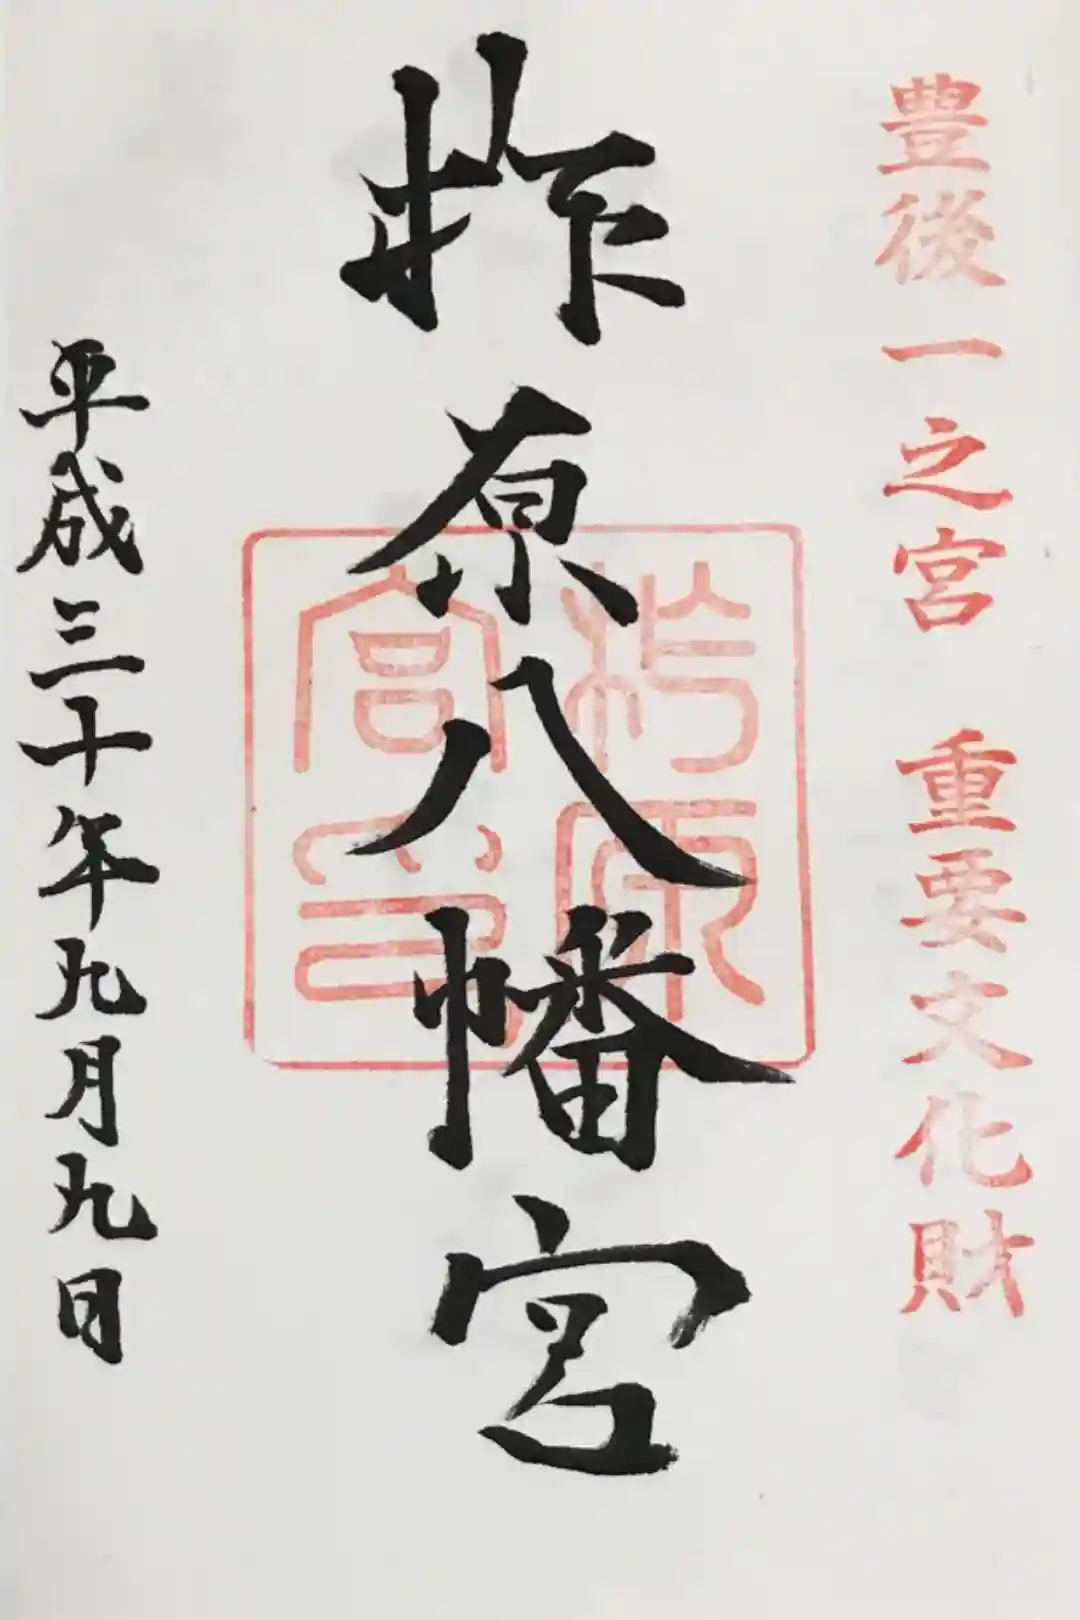 豊後一之宮 重要文化財
柞原八幡宮
平成三十年九月九日